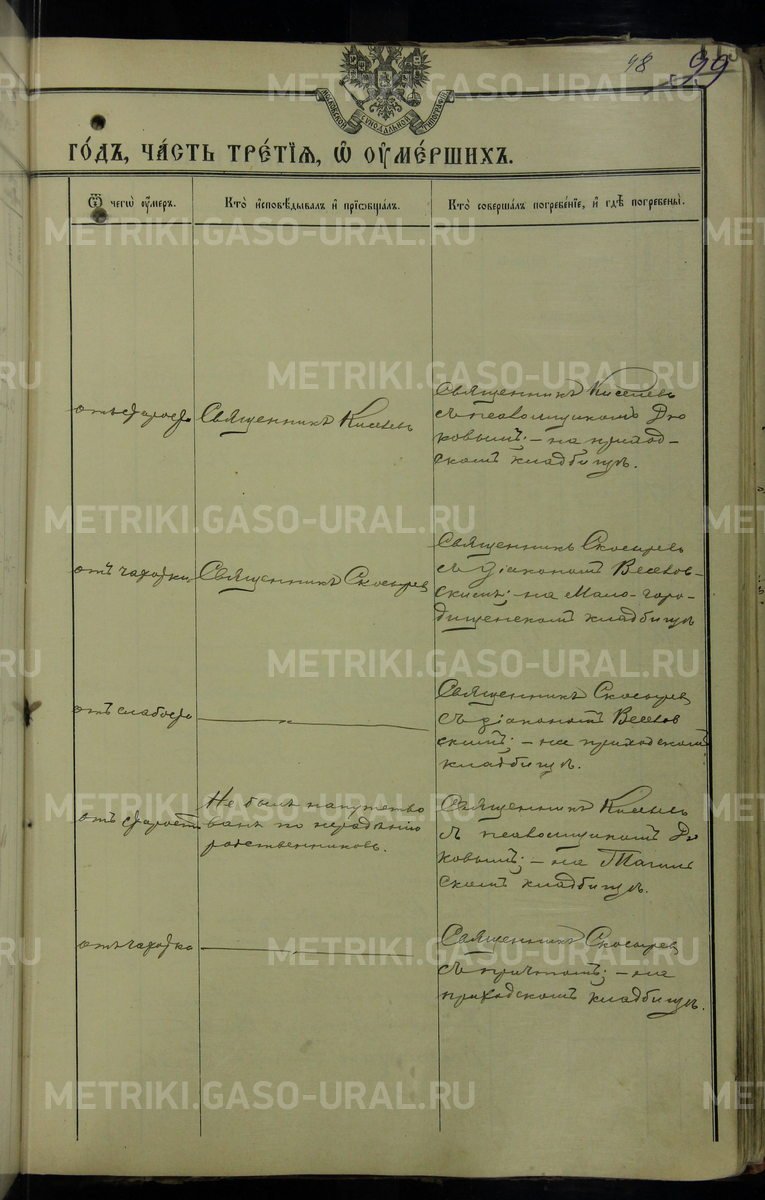 98 99
МОСКОВСКОЙ СѴНОДАЛЬНОЙ ТИПОГРАФІИ
ГО́ДЪ, ЧА́СТЬ ТРЕ́ТІѦ, Ѡ҆ ОУ҆МЕ́РШИХЪ.
Ѿ чегѡ̀ ᲂу҆́меръ.
Кто̀ и҆сповѣ́дывалъ и҆ прїѡбща́лъ.
Кто̀ соверша́лъ погребе́нїе, и҆ гдѣ̀ погребены̀.
отъ старости
Священникъ Киселевъ
Священникъ Киселевъ
съ псаломщикомъ Дю
ковымъ; – на приход–
скомъ кладбищѣ.
отъ чахотки
Священникъ Скосыревъ
Священникъ Скосыревъ
съ діакономъ Веселов–
скимъ; – на Мало-горо–
дищенскомъ кладбищѣ
отъ слабости
Священникъ Скосырев
съ діакономъ Веселов
скимъ; – на приходскомъ
кладбищѣ.
отъ старости
Не былъ напутство
ванъ по нерадѣнію
родственниковъ.
Священникъ Киселевъ
съ псаломщикомъ Дю
ковымъ; – на Тагиль
скомъ кладбищѣ.
отъ чахотки
Священникъ Скосырев
съ причтомъ; – на
приходскомъ кладбищѣ.
METRIKI.GASO-URAL.RU